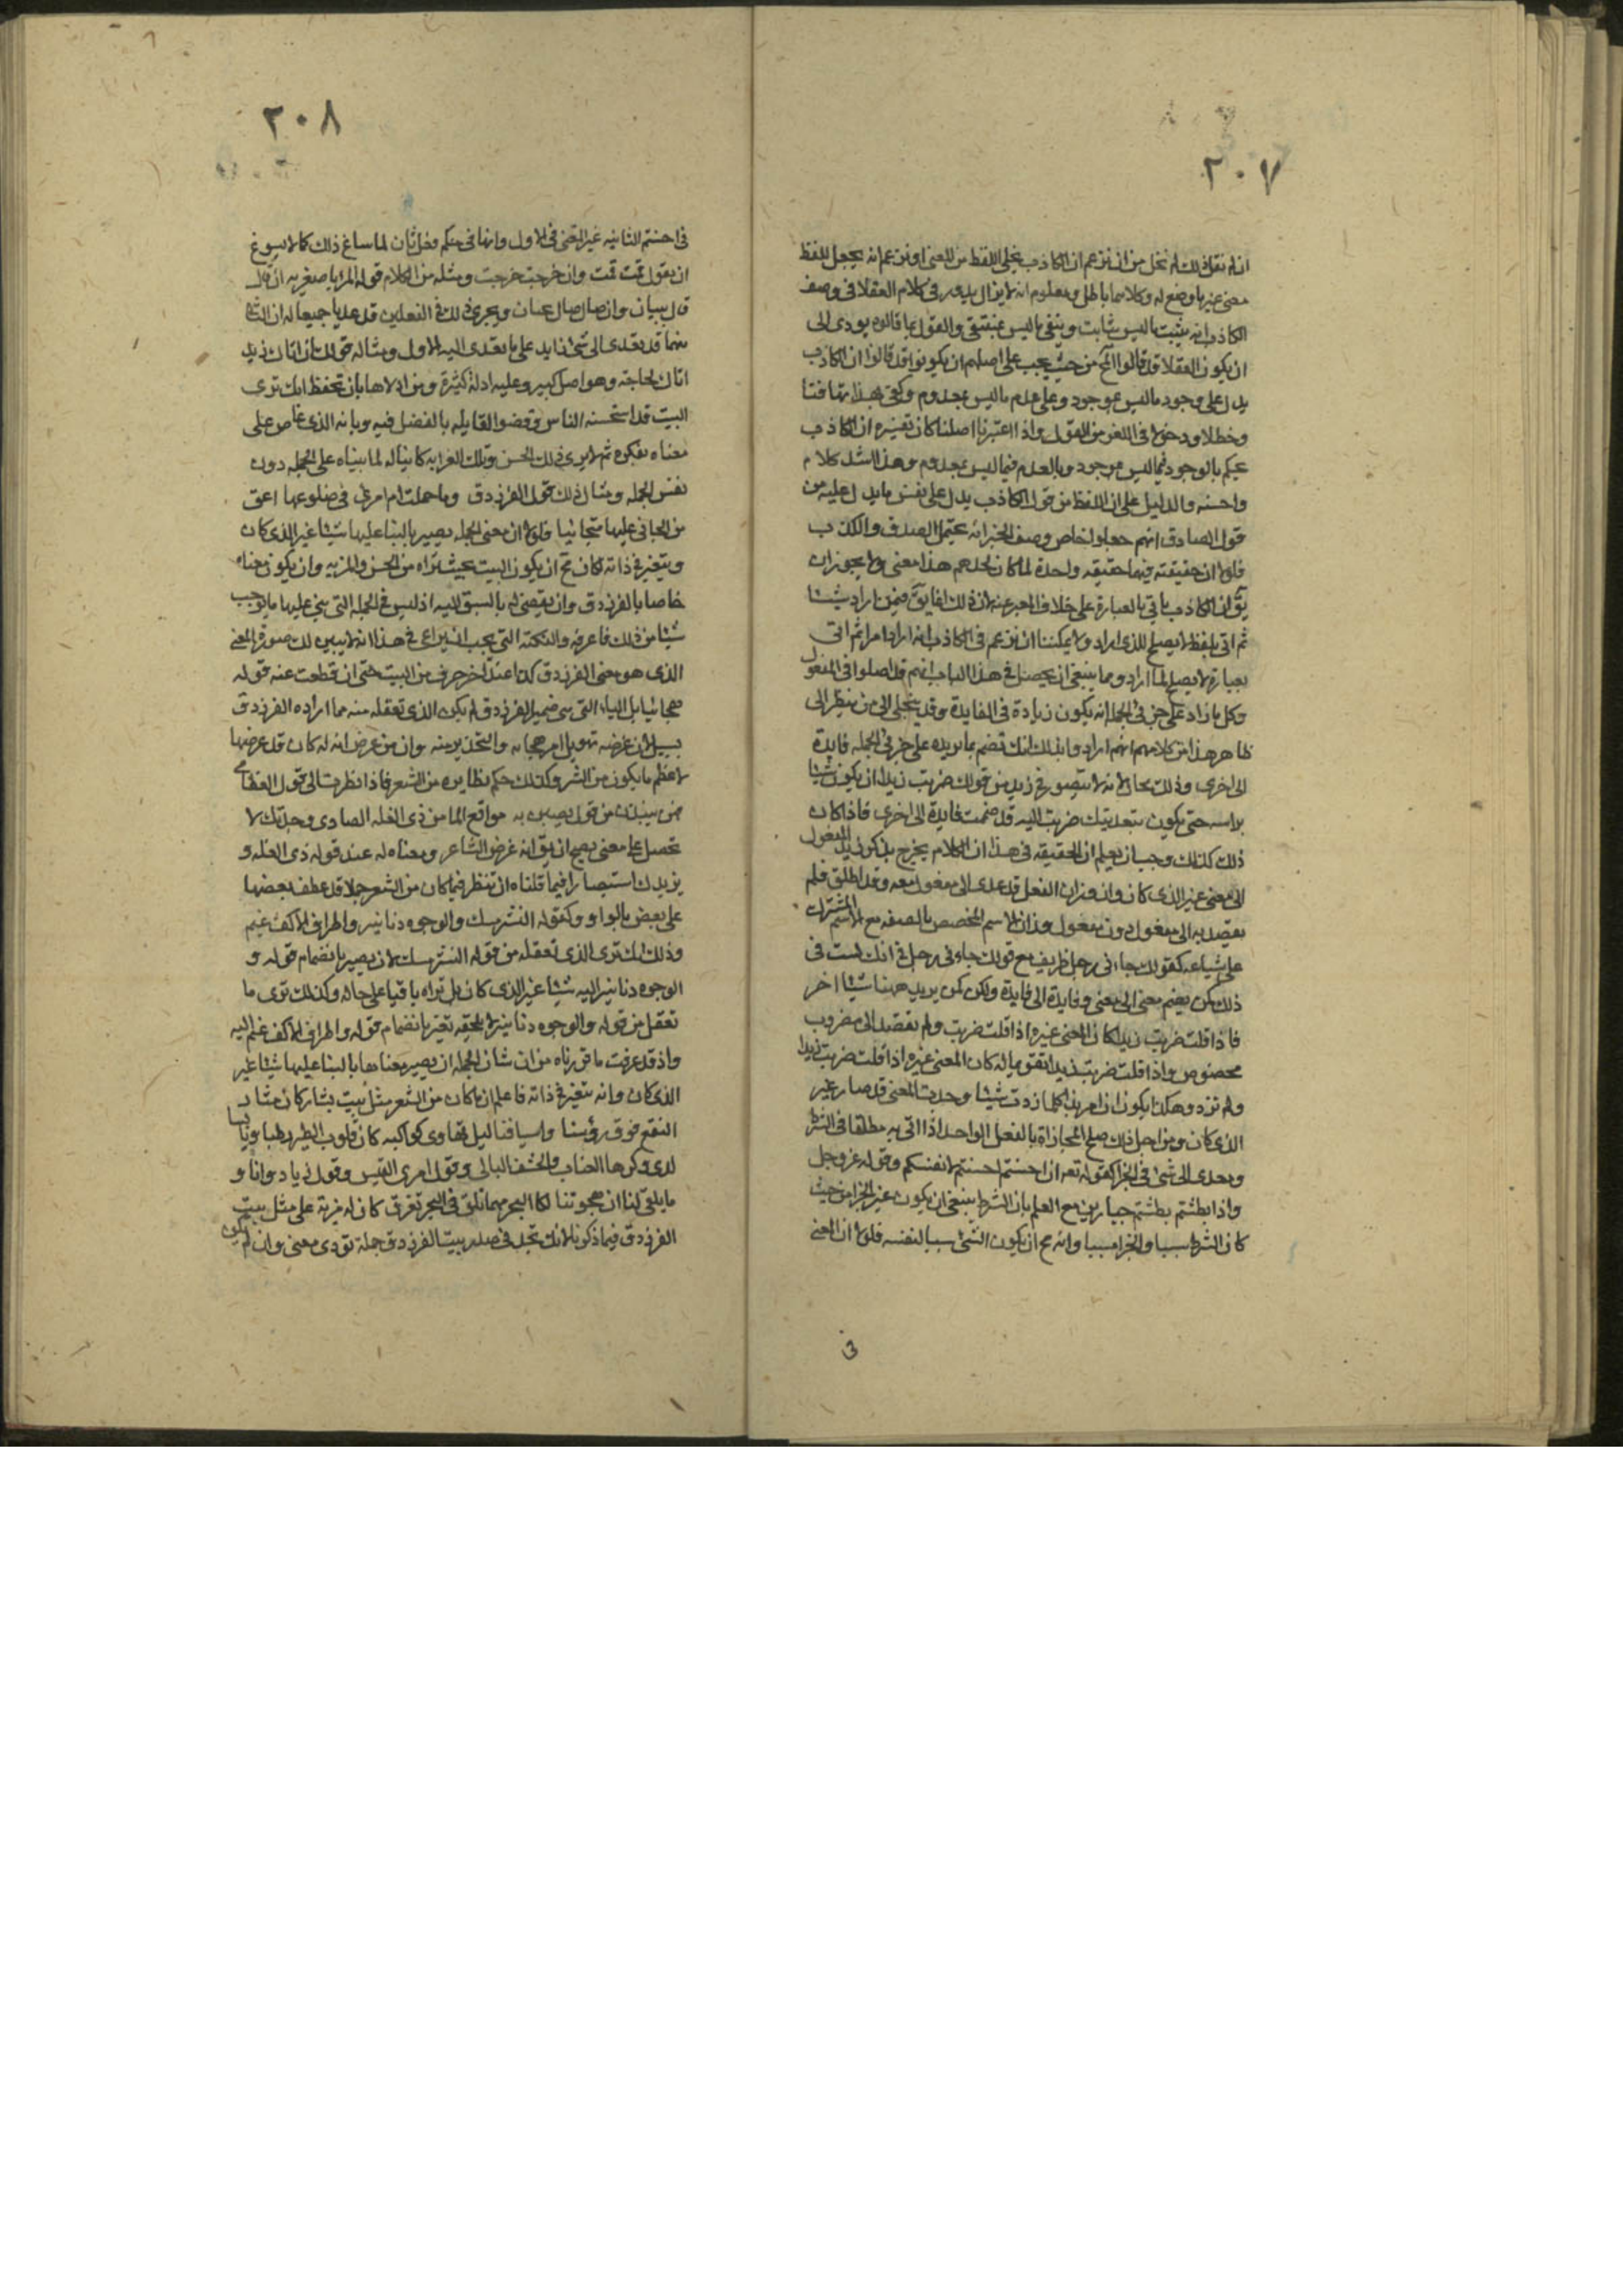 ٢٠٧
ان لم نقل ذلك لم نخل من ان نزعم ان الكاذب يخلي اللفظ من المعنى او نزعم انه يجعل للفظ
معنى غير ما وضع له وكلاهما باطل ومعلوم انه لا يزال يدور في كلام العقلا في وصف
الكاذب انه يثبت ما ليس بثابت وينفي ما ليس بمنتفي والقول بما قالوه يودى الى
ان يكون العقلا قد قالوا المح من حيث يجب على اصلهم ان يكونوا قد قالوا ان الكاذب
يدل على وجود ما ليس بموجود وعلى عدم ما ليس بمعدوم وكفى بهذا تهافتا
وخطلا ودخولا في اللغو من القول واذا اعتبرنا اصلنا كان تفسيره ان الكاذب
يحكم بالوجود فيما ليس بموجود وبالعدم فيما ليس بمعدوم وهذا اسد كلام
واحسنه والدليل على ان اللفظ من قول الكاذب يدل على نفس ما يدل عليه من
قول الصادق انهم جعلوا خاص وصف الخبر انه يحتمل الصدق والكذب
فلولا ان حقيقته فيهما حقيقه واحدة لما كان لحدهم هذا معنى ولا يجوز ان
يق ان الكاذب ياتي بالعبارة على خلاف المعبر عنه لان ذلك انما يق فيمن اراد شيئا
ثم اتى بلفظ لا يصلح للذى اراد ولا يمكننا ان نزعم في الكاذب انه اراد امرا ثم اتى
بعبارة لا يصلح لما اراد ومما ينبغي ان يحصل في هذا الباب انهم قد اصلوا في المفعول
وكل ما زاد على جزئي الجملة انه يكون زيادة في الفايدة وقد يتخيل الى من ينظر الى
ظاهر هذا من كلامهم انهم ارادوا بذلك انك تضم بما تزيده على جزئي الجمله فايدة
الى اخرى وذلك محال لانه لا يتصور في زيد من قولك ضربت زيدا ان يكون شيئا
براسه حتى يكون بتعديتك ضربت اليه قد ضممت فايدة الى اخرى فاذا كان
ذلك كذلك وجب ان يعلم ان الحقيقه في هذا ان الكلام يخرج بذكر المفعول
الى معنى غير الذى كان وان وزان الفعل قد عدى الى مفعول معه وقد اطلق فلم
يقصد به الى مفعول دون مفعول وزان الاسم المخصص بالصفه مع الاسم المشترك
على شياعه كقولك جاءنى رجل ظريف مع قولك جاءنى رجل في انك لست في
ذلك كمن يضم معنى الى معنى وفايدة الى فايدة ولكن كمن يريد ههنا شيئا اخر
فاذا قلت ضربت زيدا كان المعنى غيره اذا قلت ضربت ولم تقصد الى مضروب
مخصوص واذا قلت ضربت زيدا تقويما له كان المعنى غيره اذا قلت ضربت زيدا
ولم تزد وهكذا يكون الامر ابدا كلما زدت شيئا وجدت المعنى قد صار غير
الذى كان ومن اجل ذلك صلح المجازاة بالفعل الواحد اذا اتى به مطلقا في الشرط
ومعدى الى شئ في الجزا كقوله تعه ان احسنتم احسنتم لانفسكم وقوله عز وجل
واذا بطشتم بطشتم جبارين مع العلم بان الشرط ينبغي ان يكون غير الجزا من حيث
كان الشرط سببا والجزا مسببا وانه مح ان يكون الشئ سببا لنفسه فلولا ان المعنى
٢٠٨
في احسنتم الثانيه غير المعنى في الاول وانها في حكم فعل ثان لما ساغ ذلك كما لا يسوغ
ان يقول قمت قمت وان خرجت خرجت ومثله من الكلام قوله المرء باصغريه ان قال
قال ببيان وان صال صال بجنان ويجرى ذلك في الفعلين قد عديا جميعا له ان الثا
منهما قد تعدى الى شئ زايد على ما تعدى اليه الاول ومثاله قولك ان اتاك زيد
اتاك لحاجته وهو اصل كبير وعليه ادلة كثيرة ومن اولاها بان تحفظ انك ترى
البيت قد استحسنه الناس وقضوا لقايله بالفضل فيه وبانه الذى غاص على
معناه بفكره ثم لا يرى ذلك الحسن وتلك الغرابه كانتا له لما بناه على الجمله دون
نفس الجمله ومثال ذلك قول الفرزدق وما حملت ام امرئ في ضلوعها اعق
من الجاني عليها هجائيا فلولا ان معنى الجمله يصير بالبنا عليها شيئا غير الذى كان
ويتغير في ذاته لكان مح ان يكون البيت بحيث تراه من الحسن والمزيه وان يكون معناه
خاصا بالفرزدق وان يقضى له بالسبق اليه اذ ليس في الجملة التي بني عليها ما يوجب
شيئا من ذلك فاعرفه والنكتة التي يجب ان يراعى في هذا انه لا يبين لك صورة المعنى
الذى هو معنى الفرزدق كذا عند آخر حرف من البيت حتى ان قطعت عنه قوله
هجائيا بل الياء التي هي ضمير الفرزدق لم يكن الذى تعقله منه مما اراده الفرزدق
بسبيل لان غرضه تهويل امر هجائه والتحذير منه وان من عرض امه له كان قد عرضها
لاعظم ما يكون من الشر وكذلك حكم نظايره من الشعر فاذا نظرت الى قول القطامي
فهن ينبذن من قول يصبن به مواقع الما من ذى الغله الصادى وجدتك لا
تحصل على معنى يصح ان يق انه غرض الشاعر ومعناه له عند قوله ذى الغله و
يزيدك استبصارا فيما قلناه ان تنظر فيما كان من الشعر جملا قد عطف بعضها
على بعض بالواو وكقوله النشر مسك والوجوه دنانير واطراف الاكف عنم
وذلك انك ترى الذى تعقله من قوله النشر مسك لا يصير بانضمام قوله و
الوجوه دنانير اليه شيئا غير الذى كان بل تراه باقيا على حاله وكذلك ترى ما
تعقل من قوله والوجوه دنانير لا يلحقه تغير بانضمام قوله واطراف الاكف عنم اليه
واذ قد عرفت ما قررناه من ان شان الجمله ان يصير معناها بالبنا عليها شيئا غير
الذى كان وانه يتغير في ذاته فاعلم ان ما كان من الشعر مثل بيت بشار كان مثار
النقع فوق رؤسنا واسيافنا ليل تهاوى كواكبه كان قلوب الطير رطبا ويابسا
لدى وكرها العناب والحشف البالى وقول امرى القيس وقول زياد وانا و
ما يلقى لنا ان هجوتنا لكا لبحر مهما تلق في البحر تغرق كان له مزية على مثل بيت
الفرزدق فيما ذكرنا لانك تجد في صدر بيت الفرزدق جملة تؤدى معنى وان لم يكن